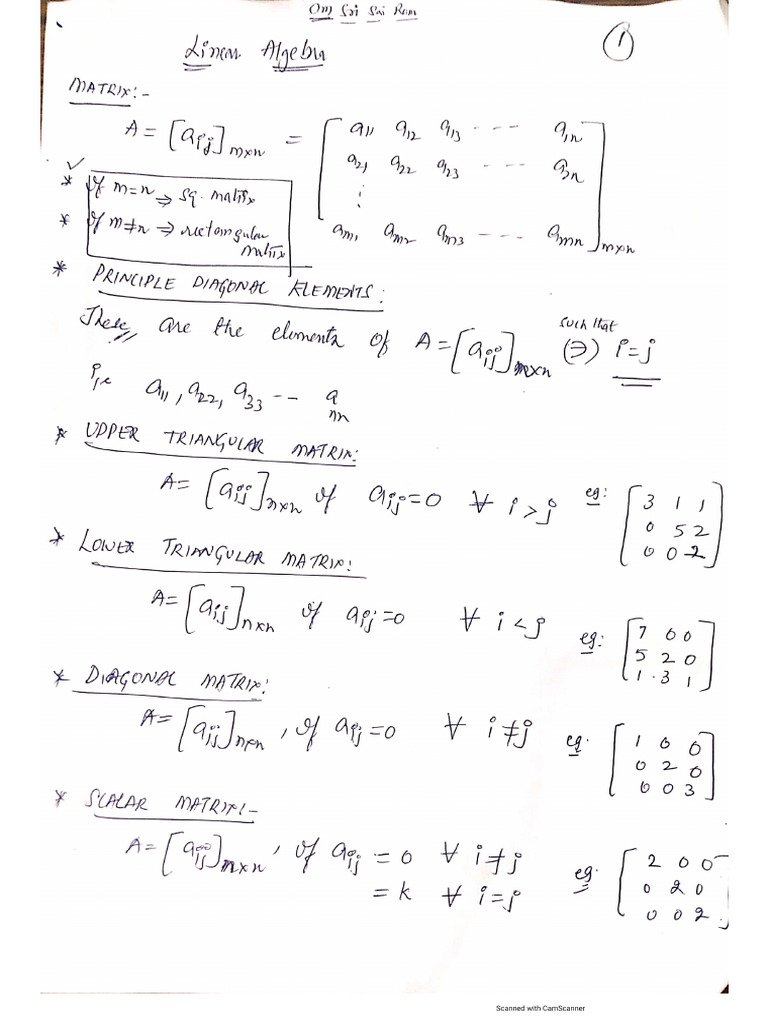 Om Sri Sai Ram
1
Linear Algebra
MATRIX:-
A = [aij]m×n = [a11 a12 a13 --- a1n
a21 a22 a23 --- a2n
⋮
am1 am2 am3 ---- amn]m×n
✓
* If m=n ⇒ sq. matrix
* If m≠n ⇒ rectangular matrix
* PRINCIPLE DIAGONAL ELEMENTS:
These are the elements of A = [aij]m×n such that (∋) i=j
i.e a11, a22, a33 -- ann
* UPPER TRIANGULAR MATRIX:
A = [aij]n×n if aij=0 ∀ i>j eg: [3 1 1
0 5 2
0 0 2]
* LOWER TRIANGULAR MATRIX:
A = [aij]n×n if aij=0 ∀ i<j eg: [7 0 0
5 2 0
1 3 1]
* DIAGONAL MATRIX:
A = [aij]n×n, if aij=0 ∀ i≠j eg. [1 0 0
0 2 0
0 0 3]
* SCALAR MATRIX:-
A = [aij]n×n, if aij = 0 ∀ i≠j
= k ∀ i=j eg: [2 0 0
0 2 0
0 0 2]
Scanned with CamScanner